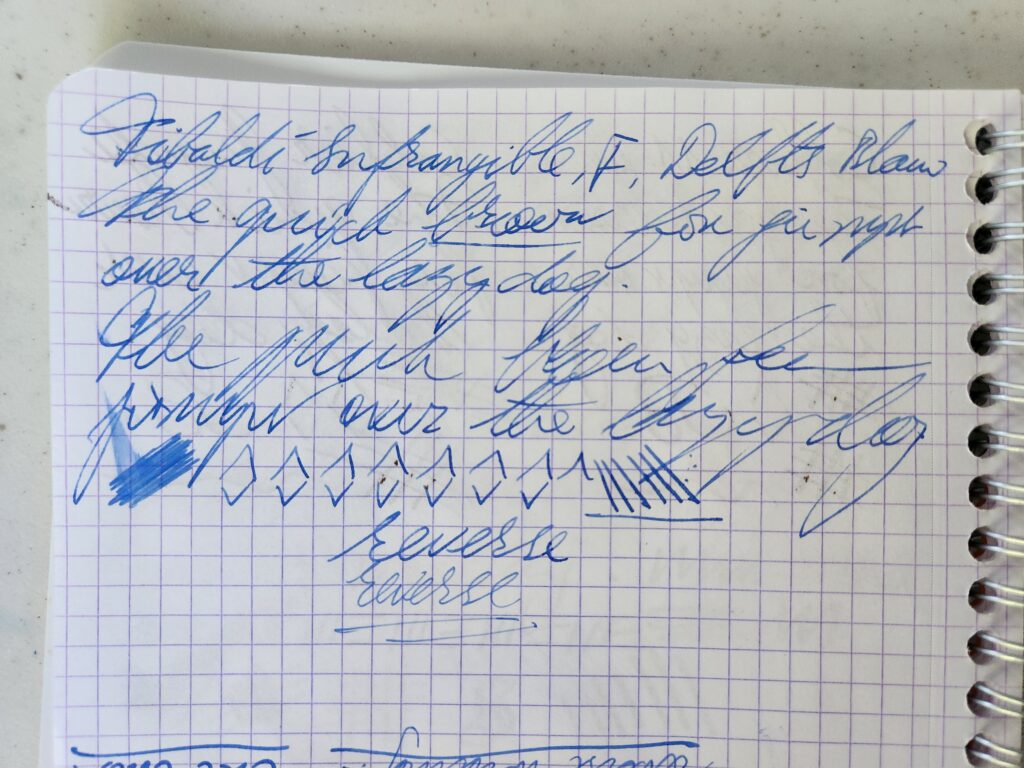 Tibaldi Infrangible, F, Delfts Blauw
The quick brown fox jumps
over the lazy dog.
The quick brown fox
jumps over the lazy dog
Reverse
Reverse